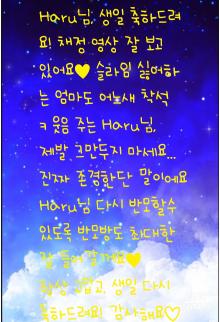 Haru님, 생일 축하드려
요! 채정 영상 잘 보고
있어요♥ 슬라임 싫어하
는 엄마도 어느새 착석
ㅋ 웃음 주는 Haru님,
제발 그만두지 마세요...
진짜 존경한단 말이에요
Haru님 다시 반모할수
있도록 반모방도 최대한
잘 들러갈게요♥
항상 고맙고, 생일 다시
축하드려요! 감사해요♡